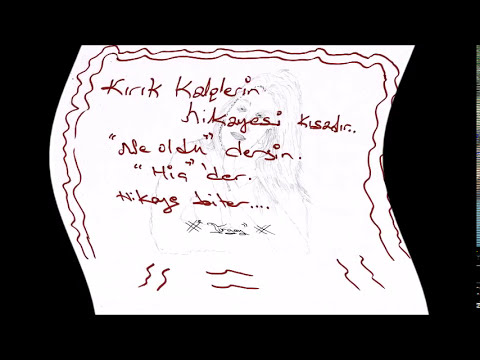 Kırık Kalplerin
hikayesi kısadır..
"Ne oldu" dersin.
"Hiç" der.
Hikaye biter....